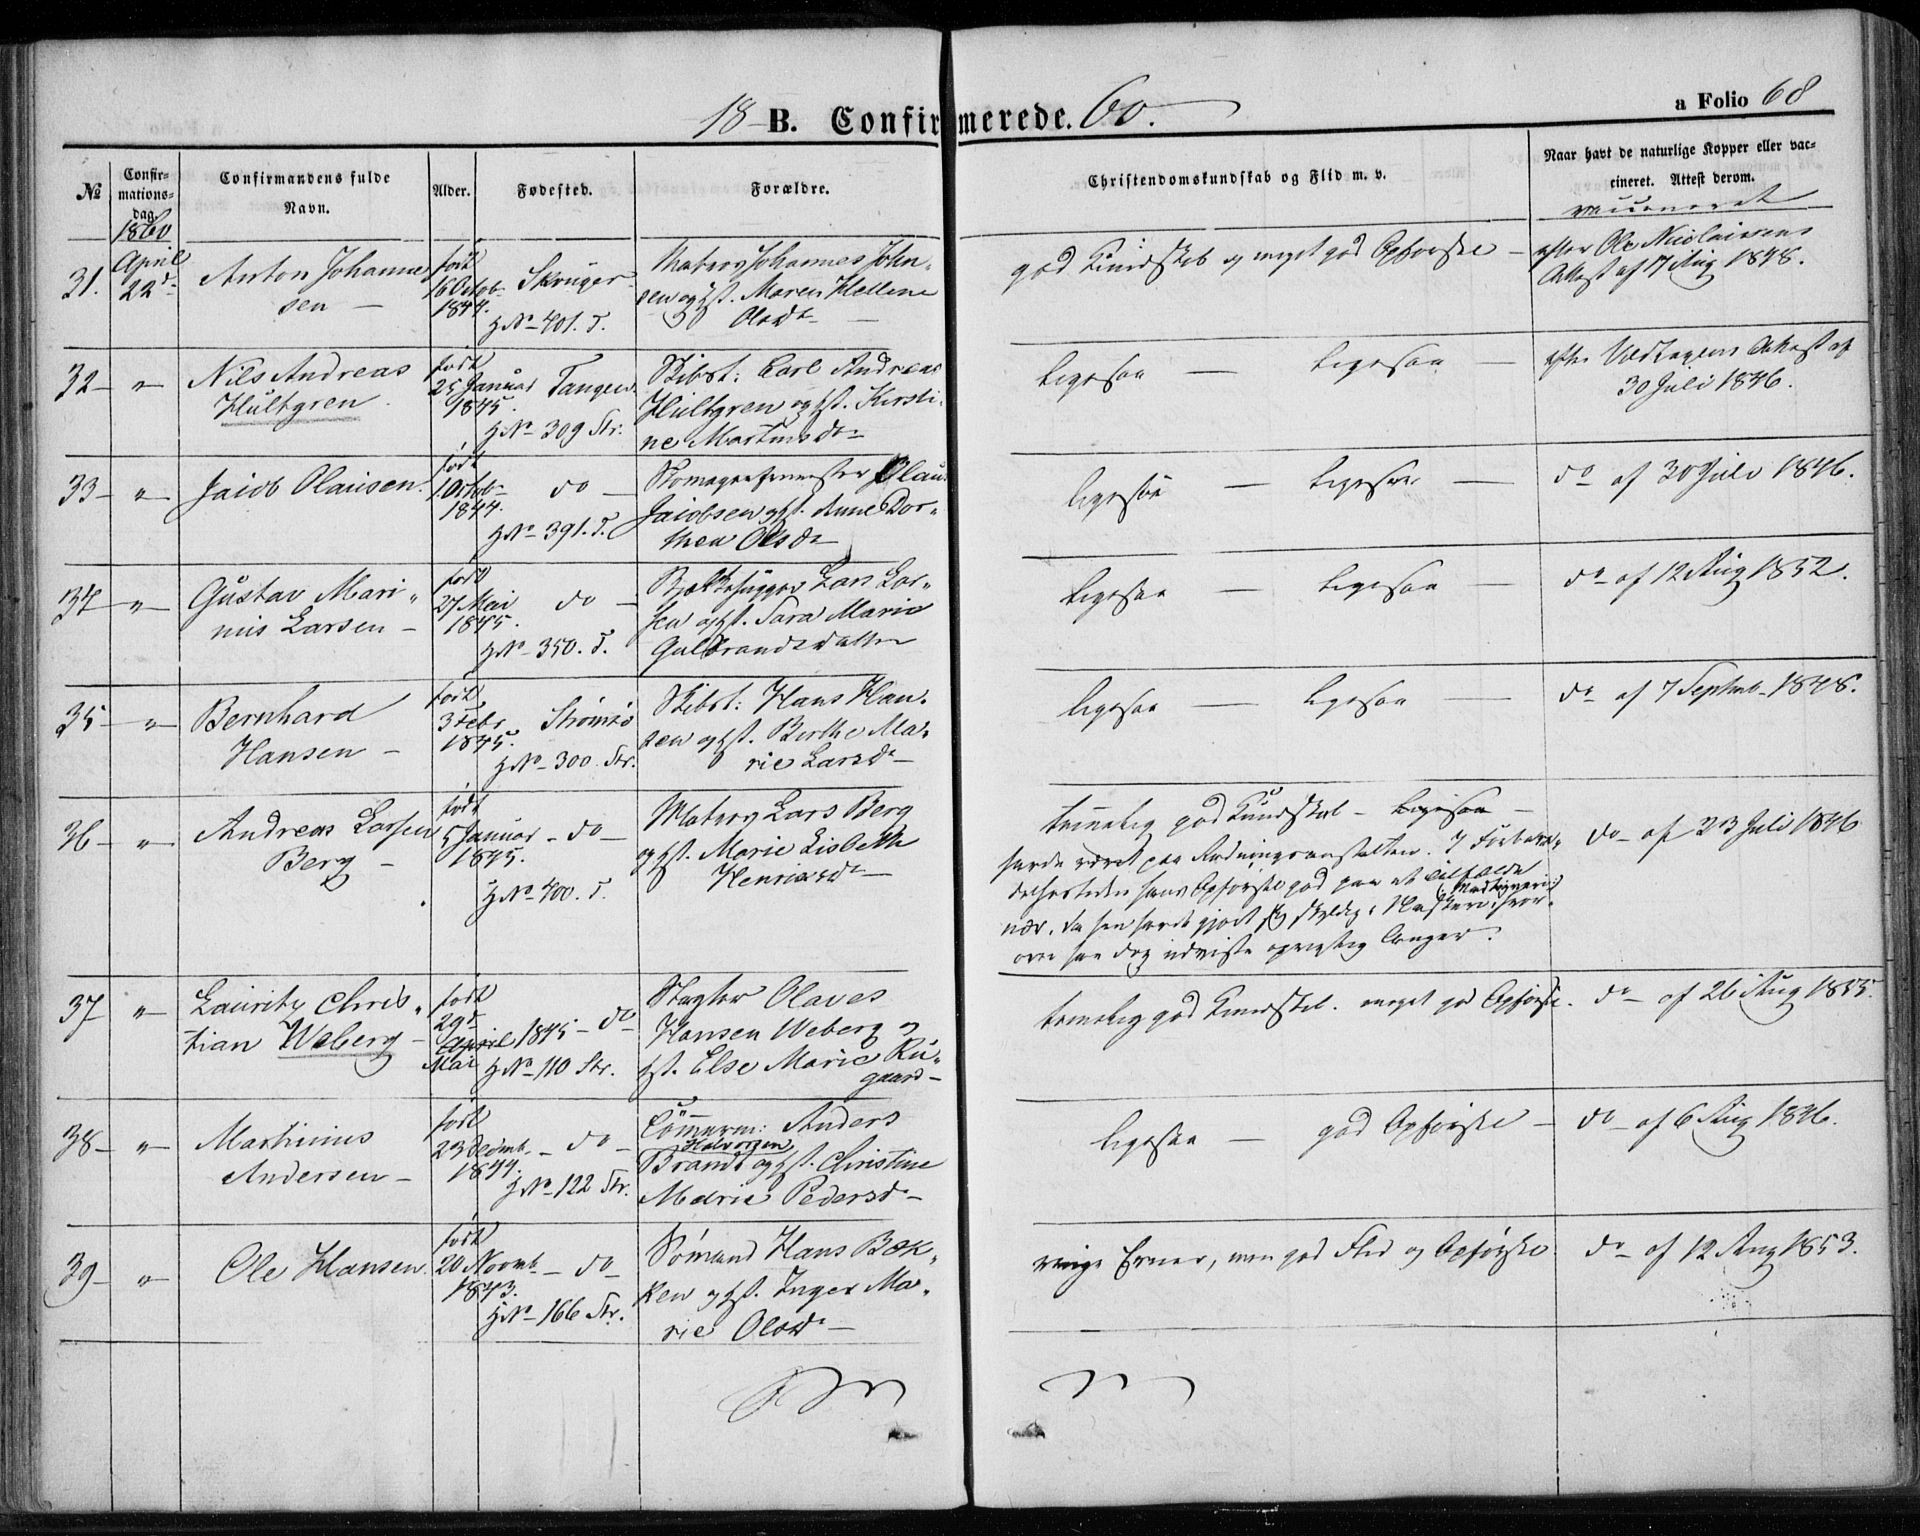 18 B. Confirmerede. 60.
a Folio 68
No
Confirmations-
dag.
Confirmandens fulde
Navn.
Alder.
Fødested.
Forældre.
Christendomskundskab og Flid m. v.
Naar havt de naturlige Kopper eller vac-
cineret. Attest derom.
vaccineret
1860
31.
April
22d
Anton Johanne
sen
født
16 Octob.
1844.
Skruger
H No 401. T.
Matros Johannes John-
sen og Hst. Maren Hellene
Olsdr
god Kundskab og meget god Opførsel
efter Ole Nicolaisens
Attest af 17 Aug 1848.
32 "
Nils Andreas
Hultgren
født
25 Januar
1845.
Tangen
H No 309 Str.
Skibst: Carl Andreas
Hultgren og Hst. Kirsti-
ne Martinsdr
ligesaa ligesaa
efter Attest af
30 Juli 1846.
33 "
Jacob Olausen
født
1 Octob.
1844.
do
H No 391. T.
Skomagermester Olaus
Jacobsen og Hst. Anne Dor-
thea Olsdr
ligesaa ligesaa
do af 30 Juli 1846.
34 "
Gustav Mari-
nius Larsen
født
27 Mai
1845.
do
H No 350. T.
Bjelkehugger Lars Lar-
sen og Hst. Sara Marie
Gulbrandsdatter
ligesaa ligesaa
do af 12 Aug 1852.
35 "
Bernhard
Hansen
født
3 Febr
1845.
Strømsø
H No 300. Str.
Skibst: Hans Han-
sen og Hst. Berthe Ma-
rie Larsdr
ligesaa ligesaa
do af 7 Septmb. 1848.
36 "
Andreas Larsen
Berg
født
5 Januar
1845.
do
H No 400. T.
Matros Lars Berg
og Hst. Marie Lisbeth
Henriksdr
temmelig god Kundskab ligesaa
havde været paa Redningsanstalten. I Forbere-
delsestiden hans Opførsel god paa et Tilfælde
nær, da han havde gjort sig skyldig i hvor-
over han dog udviste oprigtig Anger.
do af 23 Juli 1846
37 "
Lauritz Chris-
tian Weberg
født
29d
April 1845
Mai
do
H No 110 Str.
Slagter Olaves
Hansen Weberg og
Hst. Else Marie Ru-
gaard
temmelig god Kundskab. meget god Opførsel.
do af 26 Aug 1855.
38 "
Marthinius
Andersen
født
23 Decmb.
1844.
do
H No 122 Str.
Anders
Halvorsen
Brandt og Hst. Christine
Marie Pedersdr
ligesaa god Opførsel
do af 6 Aug 1846.
39 "
Ole Hansen
født
20 Novmb
1843.
do
H No 166 Str.
Sømand Hans Bæk-
ken og Hst. Inger Ma-
rie Olsdr
ringe Evner, men god Flid og Opførsel
do af 12 Aug 1853.